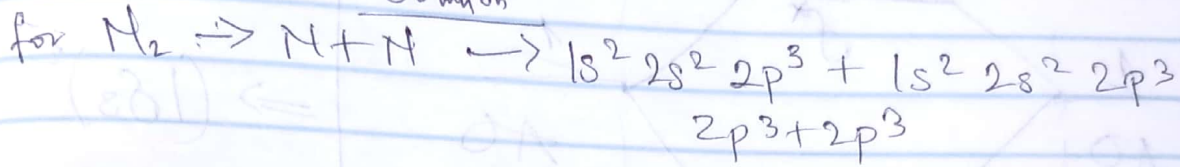 for N₂ → N+N → 1s² 2s² 2p³ + 1s² 2s² 2p³
2p³+2p³